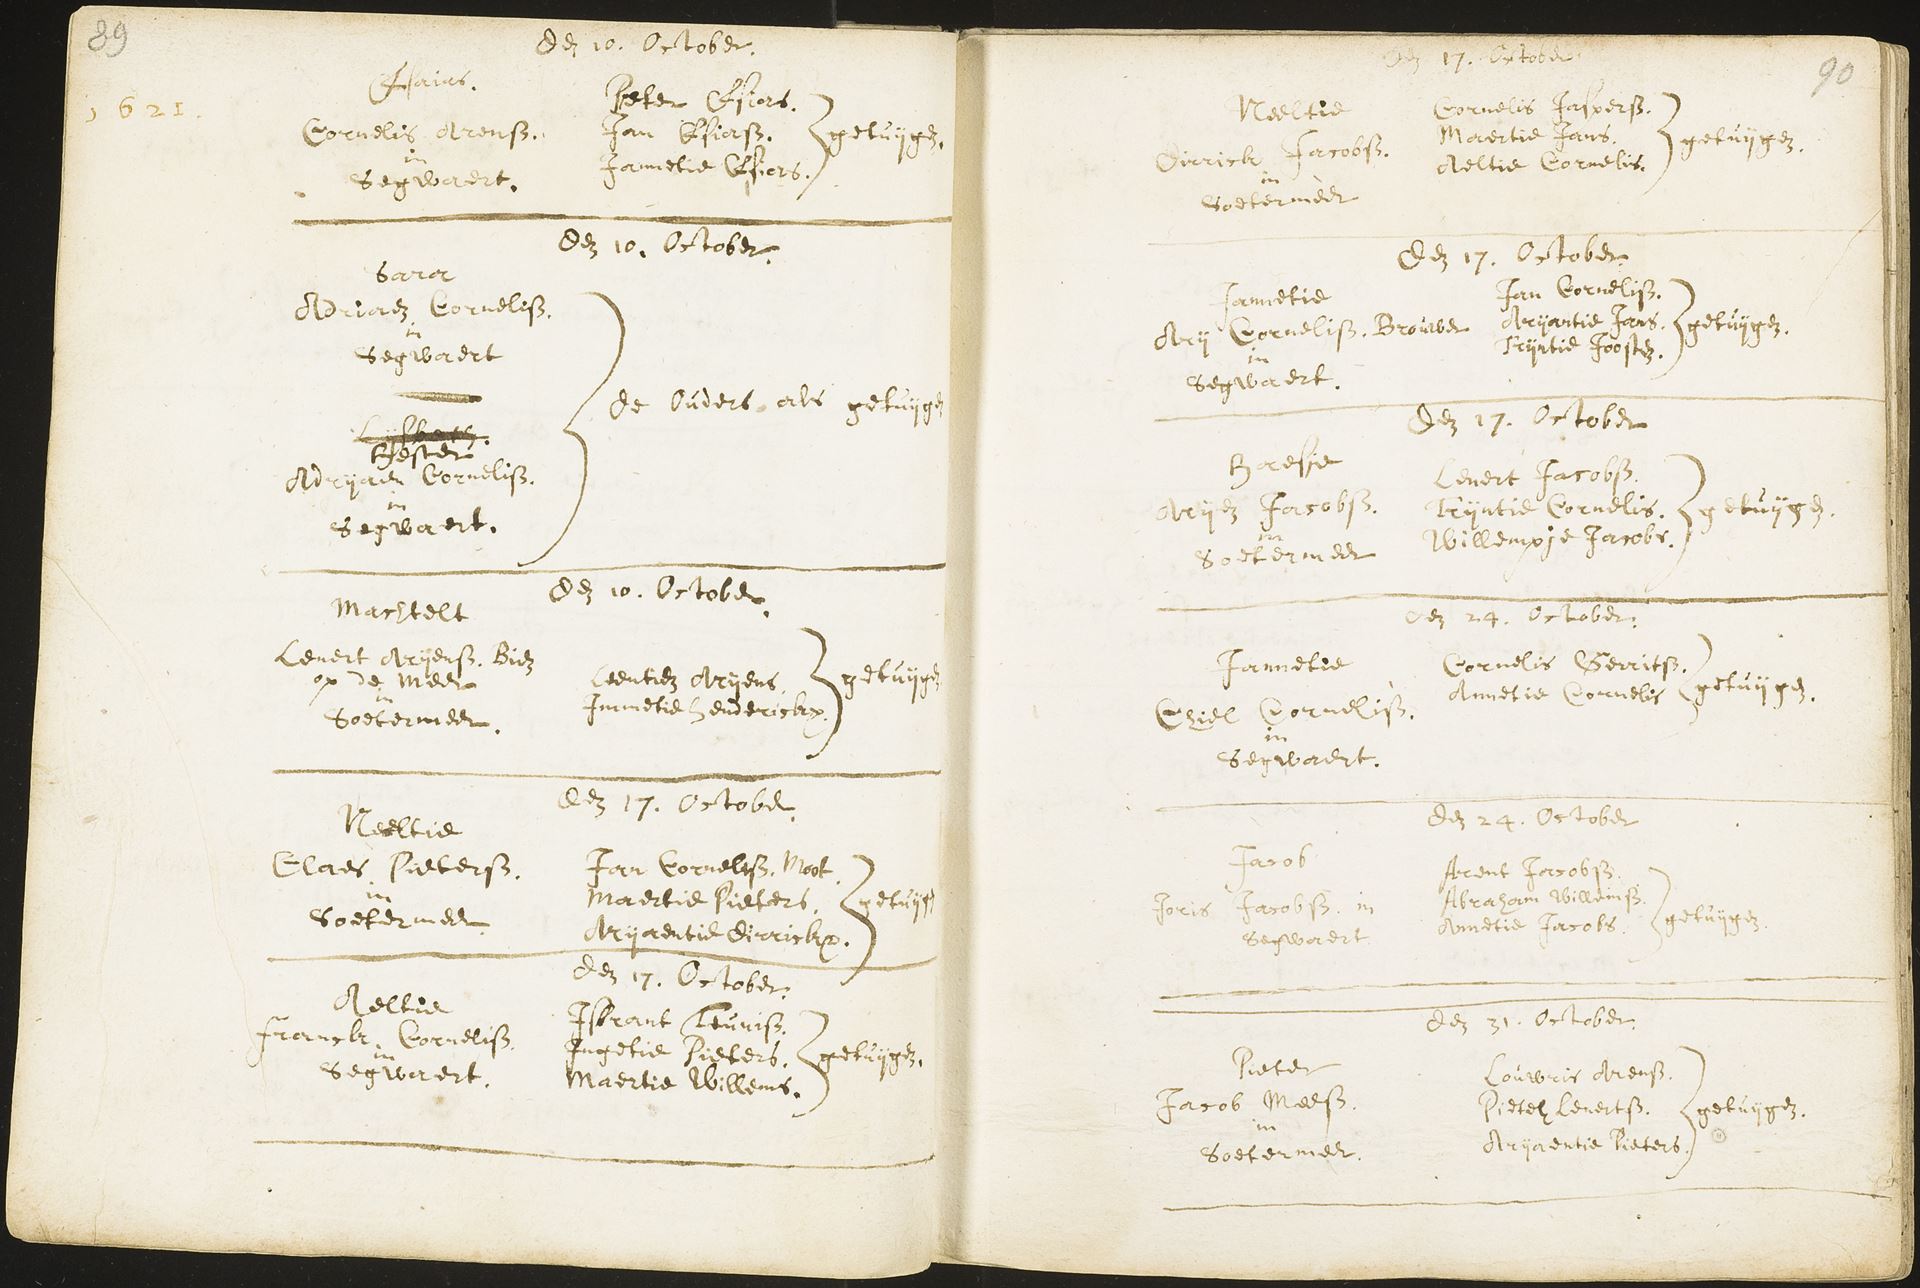 89
1621.
Den 10. October.
Esaias.
Cornelis Arenß.
in
Segwaert.
Peter Esias.
Jan Esiaß.
Jannetie Esias.
getuijgen.
Den 10. October.
Sara
Adriaen Corneliß.
in
Segwaert
Lijsbeth.
Hester
Adrijaen Corneliß.
in
Segwaert.
de Ouders als getuijgen
Den 10. October.
Machtelt
Lenert Arijenß. Bien
op de Meer
in
Soetermeer.
Leentien Arijens.
Immetie Hendericks.
getuijgen
Den 17. October.
Neeltie
Claes Pieterß.
in
Soetermeer
Jan Corneliß. Moot.
Maertie Pieters.
Arijaentie Dirricks.
getuijg
Den 17. October.
Aeltie
Franck Corneliß.
in
Segwaert.
Isbrant Teuniß.
Ingetie Pieters.
Maertie Willems.
getuijgen.
90
Den 17. October
Neeltie
Dirrick Jacobß.
in
Soetermeer
Cornelis Jasperß.
Maertie Jans.
Aeltie Cornelis.
getuijgen.
Den 17. October
Jannetie
Arij Corneliß. Brouwer
in
Segwaert.
Jan Corneliß.
Arijantie Jans.
Trijntie Joosten.
getuijgen.
Den 17. October
Haesje
Arijen Jacobß.
in
Soetermeer
Lenert Jacobß.
Trijntie Cornelis.
Willempje Jacobs.
getuijgen.
Den 24. October.
Jannetie
Chiel Corneliß.
in
Segwaert.
Cornelis Gerritß.
Annetie Cornelis
getuijgen.
Den 24. October
Jacob
Joris Jacobß. in
Segwaert
Arent Jacobß.
Abraham Willemß.
Annetie Jacobs.
getuijgen.
Den 31. October.
Pieter
Jacob Meesß.
in
Soetermeer.
Louwris Arenß.
Pieter Lenertß.
Arijaentie Pieters
getuijgen.